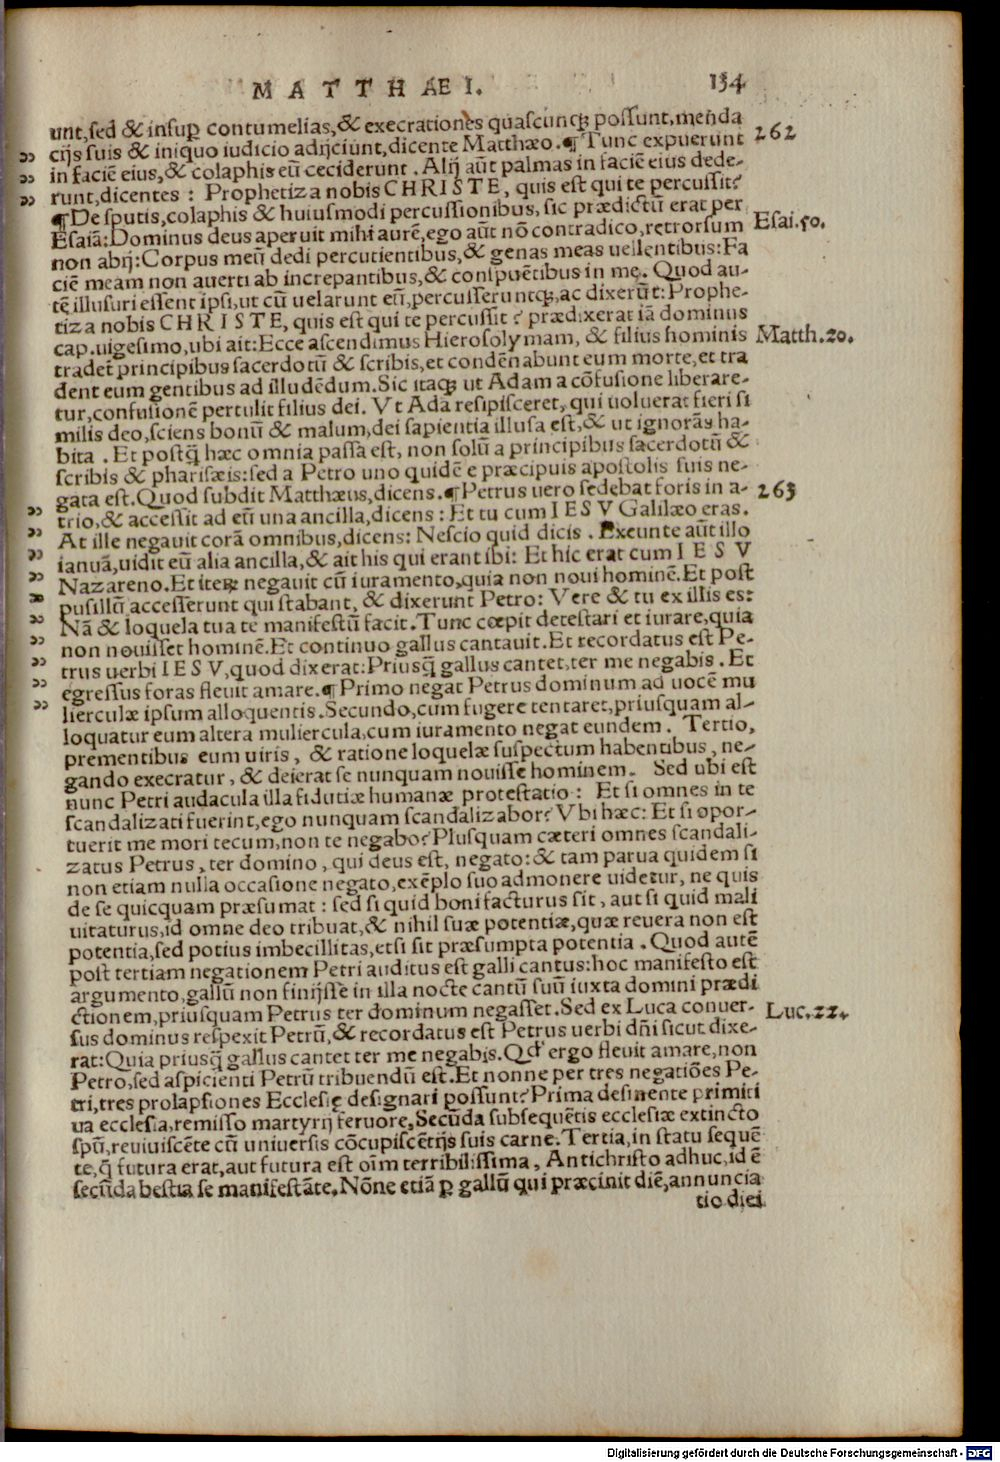 MATTHAEI. 134
unt,sed & insup contumelias,& execrationes quascunqꝫ possunt,menda
cijs suis & iniquo iudicio adijciunt,dicente Matthæo.¶Tunc expuerunt 262
in faciẽ eius,& colaphis eum ceciderunt. Alij aũt palmas in faciẽ eius dede-
runt,dicentes: Prophetiza nobis CHRISTE, quis est qui te percussit?
¶De sputis,colaphis & huiusmodi percussionibus, sic prædictũ erat per
Esaiã:Dominus deus aperuit mihi aurẽ,ego aũt nõ contradico,retrorsum Esai.50.
non abij:Corpus meũ dedi percutientibus,& genas meas uellentibus:Fa
ciẽ meam non auerti ab increpantibus,& conspuẽtibus in me. Quod au-
tẽ illusuri essent ipsi,ut cũ uelarunt eũ,percusseruntqꝫ,ac dixerũt:Prophe-
tiza nobis CHRISTE, quis est qui te percussit? prædixerat iã dominus
cap.uigesimo,ubi ait:Ecce ascendimus Hierosolymam, & filius hominis Matth.20.
tradet principibus sacerdotũ & scribis,et condẽnabunt eum morte,et tra
dent eum gentibus ad illudẽdum.Sic itaqꝫ ut Adam a cõfusione liberare-
tur,confusionẽ pertulit filius dei. Vt Adã resipisceret, qui uoluerat fieri si
milis deo,sciens bonũ & malum,dei sapientia illusa est,& ut ignorãs ha-
bita. Et postq̃ hæc omnia passa est, non solũ a principibus sacerdotũ &
scribis & pharisæis:sed a Petro uno quidẽ e præcipuis apostolis suis ne-
gata est.Quod subdit Matthæus,dicens.¶Petrus uero sedebat foris in a- 263
trio,& accessit ad eũ una ancilla,dicens: Et tu cum IESV Galilæo eras.
At ille negauit corã omnibus,dicens: Nescio quid dicis. Exeunte aũt illo
ianuã,uidit eũ alia ancilla,& ait his qui erant ibi: Et hic erat cum IESV
Nazareno.Et iteꝝ negauit cũ iuramento,quia non noui hominẽ.Et post
pusillũ accesserunt qui stabant, & dixerunt Petro: Vere & tu ex illis es:
Nã & loquela tua te manifestũ facit.Tunc cœpit detestari et iurare,quia
non nouisset hominẽ.Et continuo gallus cantauit.Et recordatus est Pe-
trus uerbi IESV,quod dixerat:Priusq̃ gallus cantet,ter me negabis. Et
egressus foras fleuit amare.¶Primo negat Petrus dominum ad uocẽ mu
lierculæ ipsum alloquentis.Secundo,cum fugere tentaret,priusquam al-
loquatur eum altera muliercula,cum iuramento negat eundem. Tertio,
prementibus eum uiris, & ratione loquelæ suspectum habentibus, ne-
gando execratur, & deierat se nunquam nouisse hominem. Sed ubi est
nunc Petri audacula illa fidutiæ humanæ protestatio: Et si omnes in te
scandalizati fuerint,ego nunquam scandalizabor? Vbi hæc: Et si opor-
tuerit me mori tecum,non te negabo? Plusquam cæteri omnes scandali-
zatus Petrus, ter domino, qui deus est, negato: & tam parua quidem si
non etiam nulla occasione negato,exẽplo suo admonere uidetur, ne quis
de se quicquam præsumat: sed si quid boni facturus sit, aut si quid mali
uitaturus,id omne deo tribuat,& nihil suæ potentiæ,quæ reuera non est
potentia,sed potius imbecillitas,etsi sit præsumpta potentia. Quod autẽ
post tertiam negationem Petri auditus est galli cantus:hoc manifesto est
argumento,gallũ non finijsse in illa nocte cantũ suũ iuxta domini prædi
ctionem,priusquam Petrus ter dominum negasset.Sed ex Luca conuer- Luc.22.
sus dominus respexit Petrũ,& recordatus est Petrus uerbi dñi sicut dixe-
rat:Quia priusq̃ gallus cantet ter me negabis.Qđ ergo fleuit amare,non
Petro,sed aspicienti Petrũ tribuendũ est.Et nonne per tres negatiões Pe-
tri,tres prolapsiones Ecclesię designari possunt? Prima desinente primiti
ua ecclesia,remisso martyrij feruore.Secũda subsequẽtis ecclesiæ extincto
spũ,reuiuiscẽte cũ uniuersis cõcupiscẽtijs suis carne.Tertia,in statu sequẽ
te,q̃ futura erat,aut futura est oĩm terribilissima, Antichristo adhuc,id ẽ
secũda bestia se manifestãte.Nõne etiã ꝑ gallũ qui præcinit diẽ,annuncia
tio diei
Digitalisierung gefördert durch die Deutsche Forschungsgemeinschaft - DFG